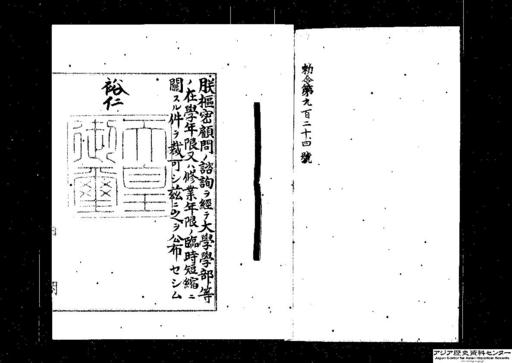 勅令第九百二十四號
朕樞密顧問ノ諮詢ヲ經テ大學學部等
ノ在學年限又ハ修業年限ノ臨時短縮ニ
關スル件ヲ裁可シ茲ニ之ヲ公布セシム
裕仁
天皇御璽
アジア歴史資料センター
Japan Center for Asian Historical Records